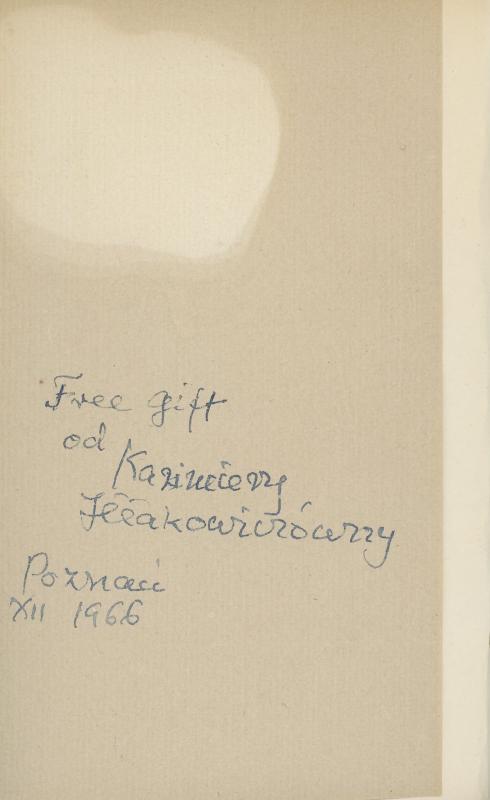 Free gift
od
Kazimiery
Iłłakowiczówny
Poznań
XII 1966